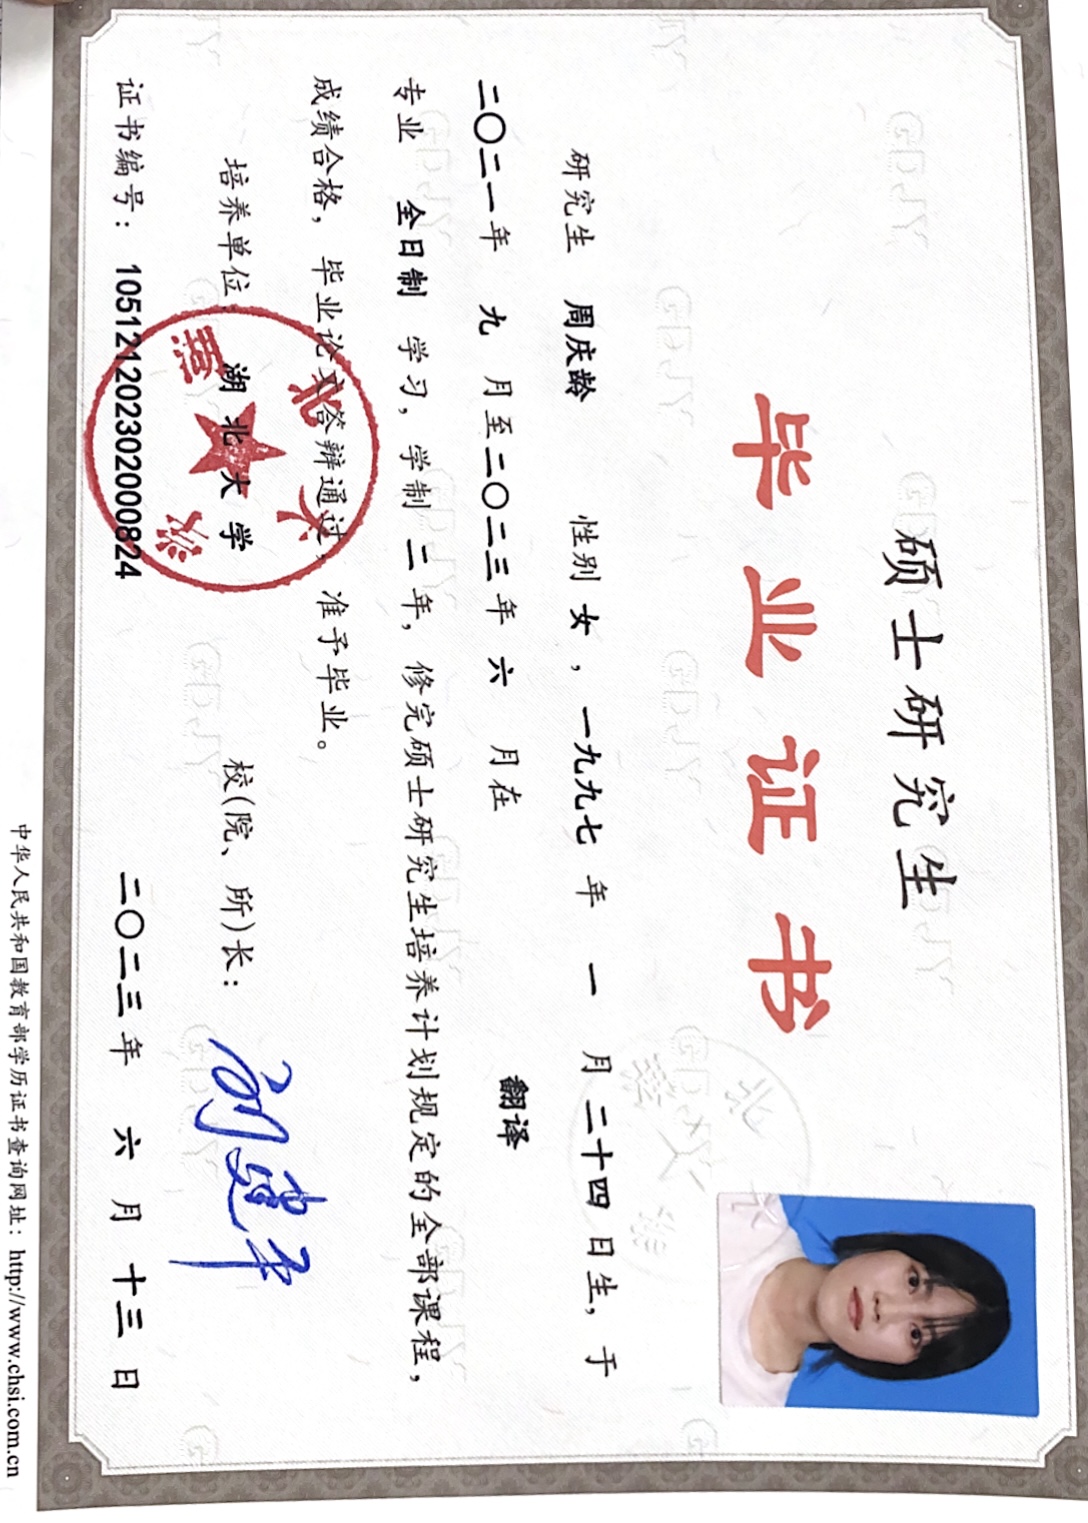 硕士研究生
毕业证书
研究生 周庆龄 性别 女，一九九七 年 一 月 二十四 日生，于
二〇二一年 九 月至二〇二三年 六 月在 翻译
专业 全日制 学习，学制 二 年，修完硕士研究生培养计划规定的全部课程，
成绩合格，毕业论文答辩通过，准予毕业。
培养单位： 湖北大学 校(院、所)长： 刘建平
证书编号：105121202302000824 二〇二三年 六 月 十三 日
中华人民共和国教育部学历证书查询网址：http://www.chsi.com.cn